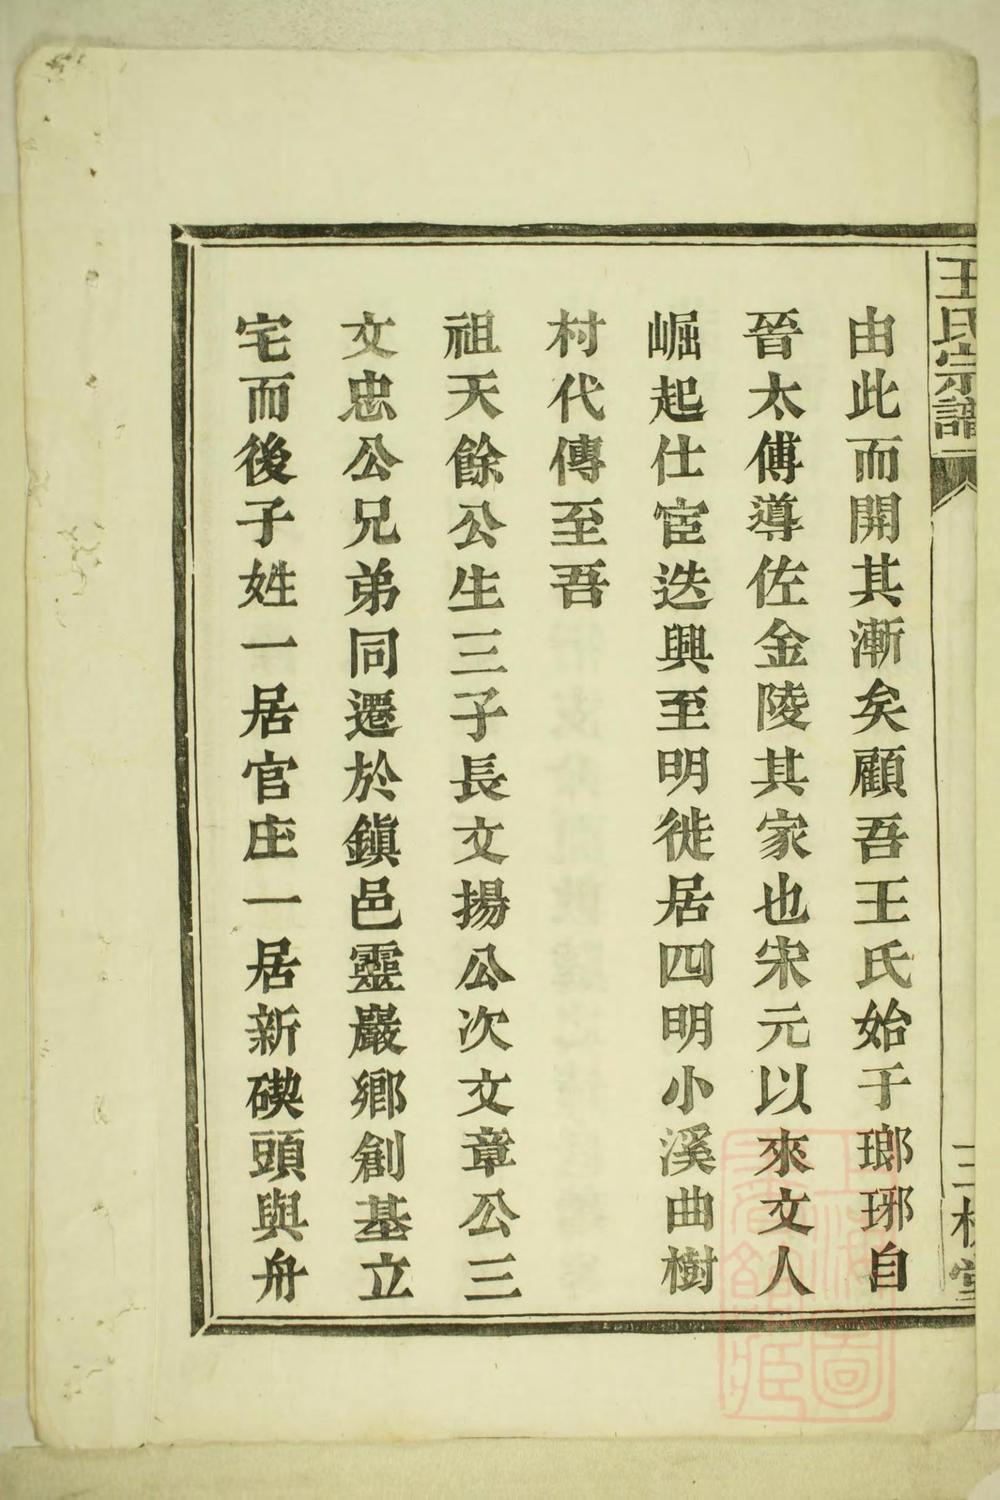 王氏宗譜
三槐堂
由此而開其漸矣顧吾王氏始于瑯琊自
晉太傅導佐金陵其家也宋元以來文人
崛起仕宦迭興至明徙居四明小溪曲樹
村代傳至吾
祖天餘公生三子長文揚公次文章公三
文忠公兄弟同遷於鎮邑靈巖鄉創基立
宅而後子姓一居官庄一居新碶頭與舟